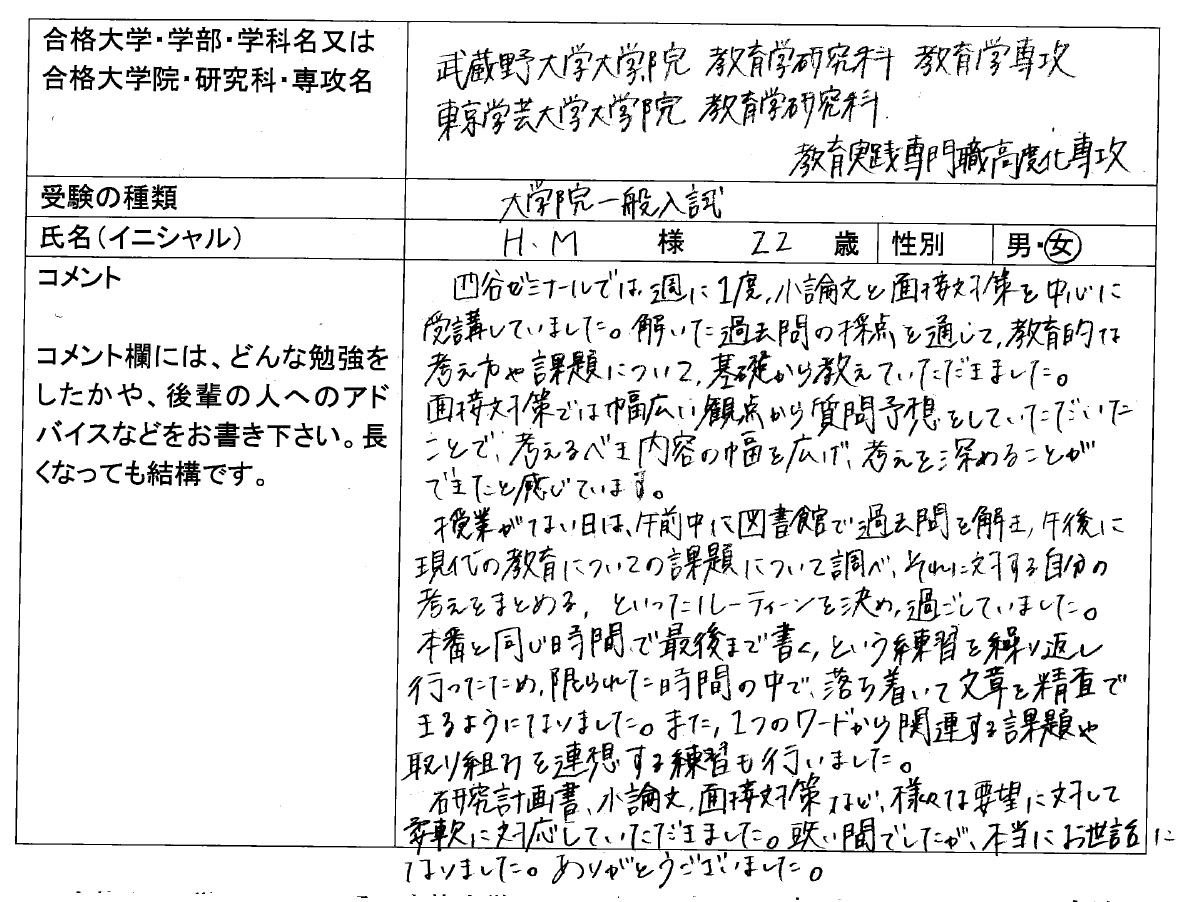 合格大学・学部・学科名又は
合格大学院・研究科・専攻名
武蔵野大学大学院 教育学研究科 教育学専攻
東京学芸大学大学院 教育学研究科
教育実践専門職高度化専攻
受験の種類
大学院一般入試
氏名(イニシャル)
H.M 様 22 歳 性別 男・女
コメント
コメント欄には、どんな勉強を
したかや、後輩の人へのアド
バイスなどをお書き下さい。長
くなっても結構です。
四谷ゼミナールでは、週に1度、小論文と面接対策を中心に
受講していました。解いた過去問の採点を通じて、教育的な
考え方や課題について、基礎から教えていただきました。
面接対策では幅広い観点から質問予想をしていただいた
ことで、考えるべき内容の幅を広げ、考えを深めることが
できたと感じています。
授業がない日は、午前中に図書館で過去問を解き、午後に
現代の教育についての課題について調べ、それに対する自分の
考えをまとめる、といったルーティーンを決め、過ごしていました。
本番と同じ時間で最後まで書く、という練習を繰り返し
行ったため、限られた時間の中で、落ち着いて文章を精査で
きるようになりました。また、1つのワードから関連する課題や
取り組みを連想する練習も行いました。
研究計画書、小論文、面接対策など、様々な要望に対して
柔軟に対応していただきました。短い間でしたが、本当にお世話に
なりました。ありがとうございました。